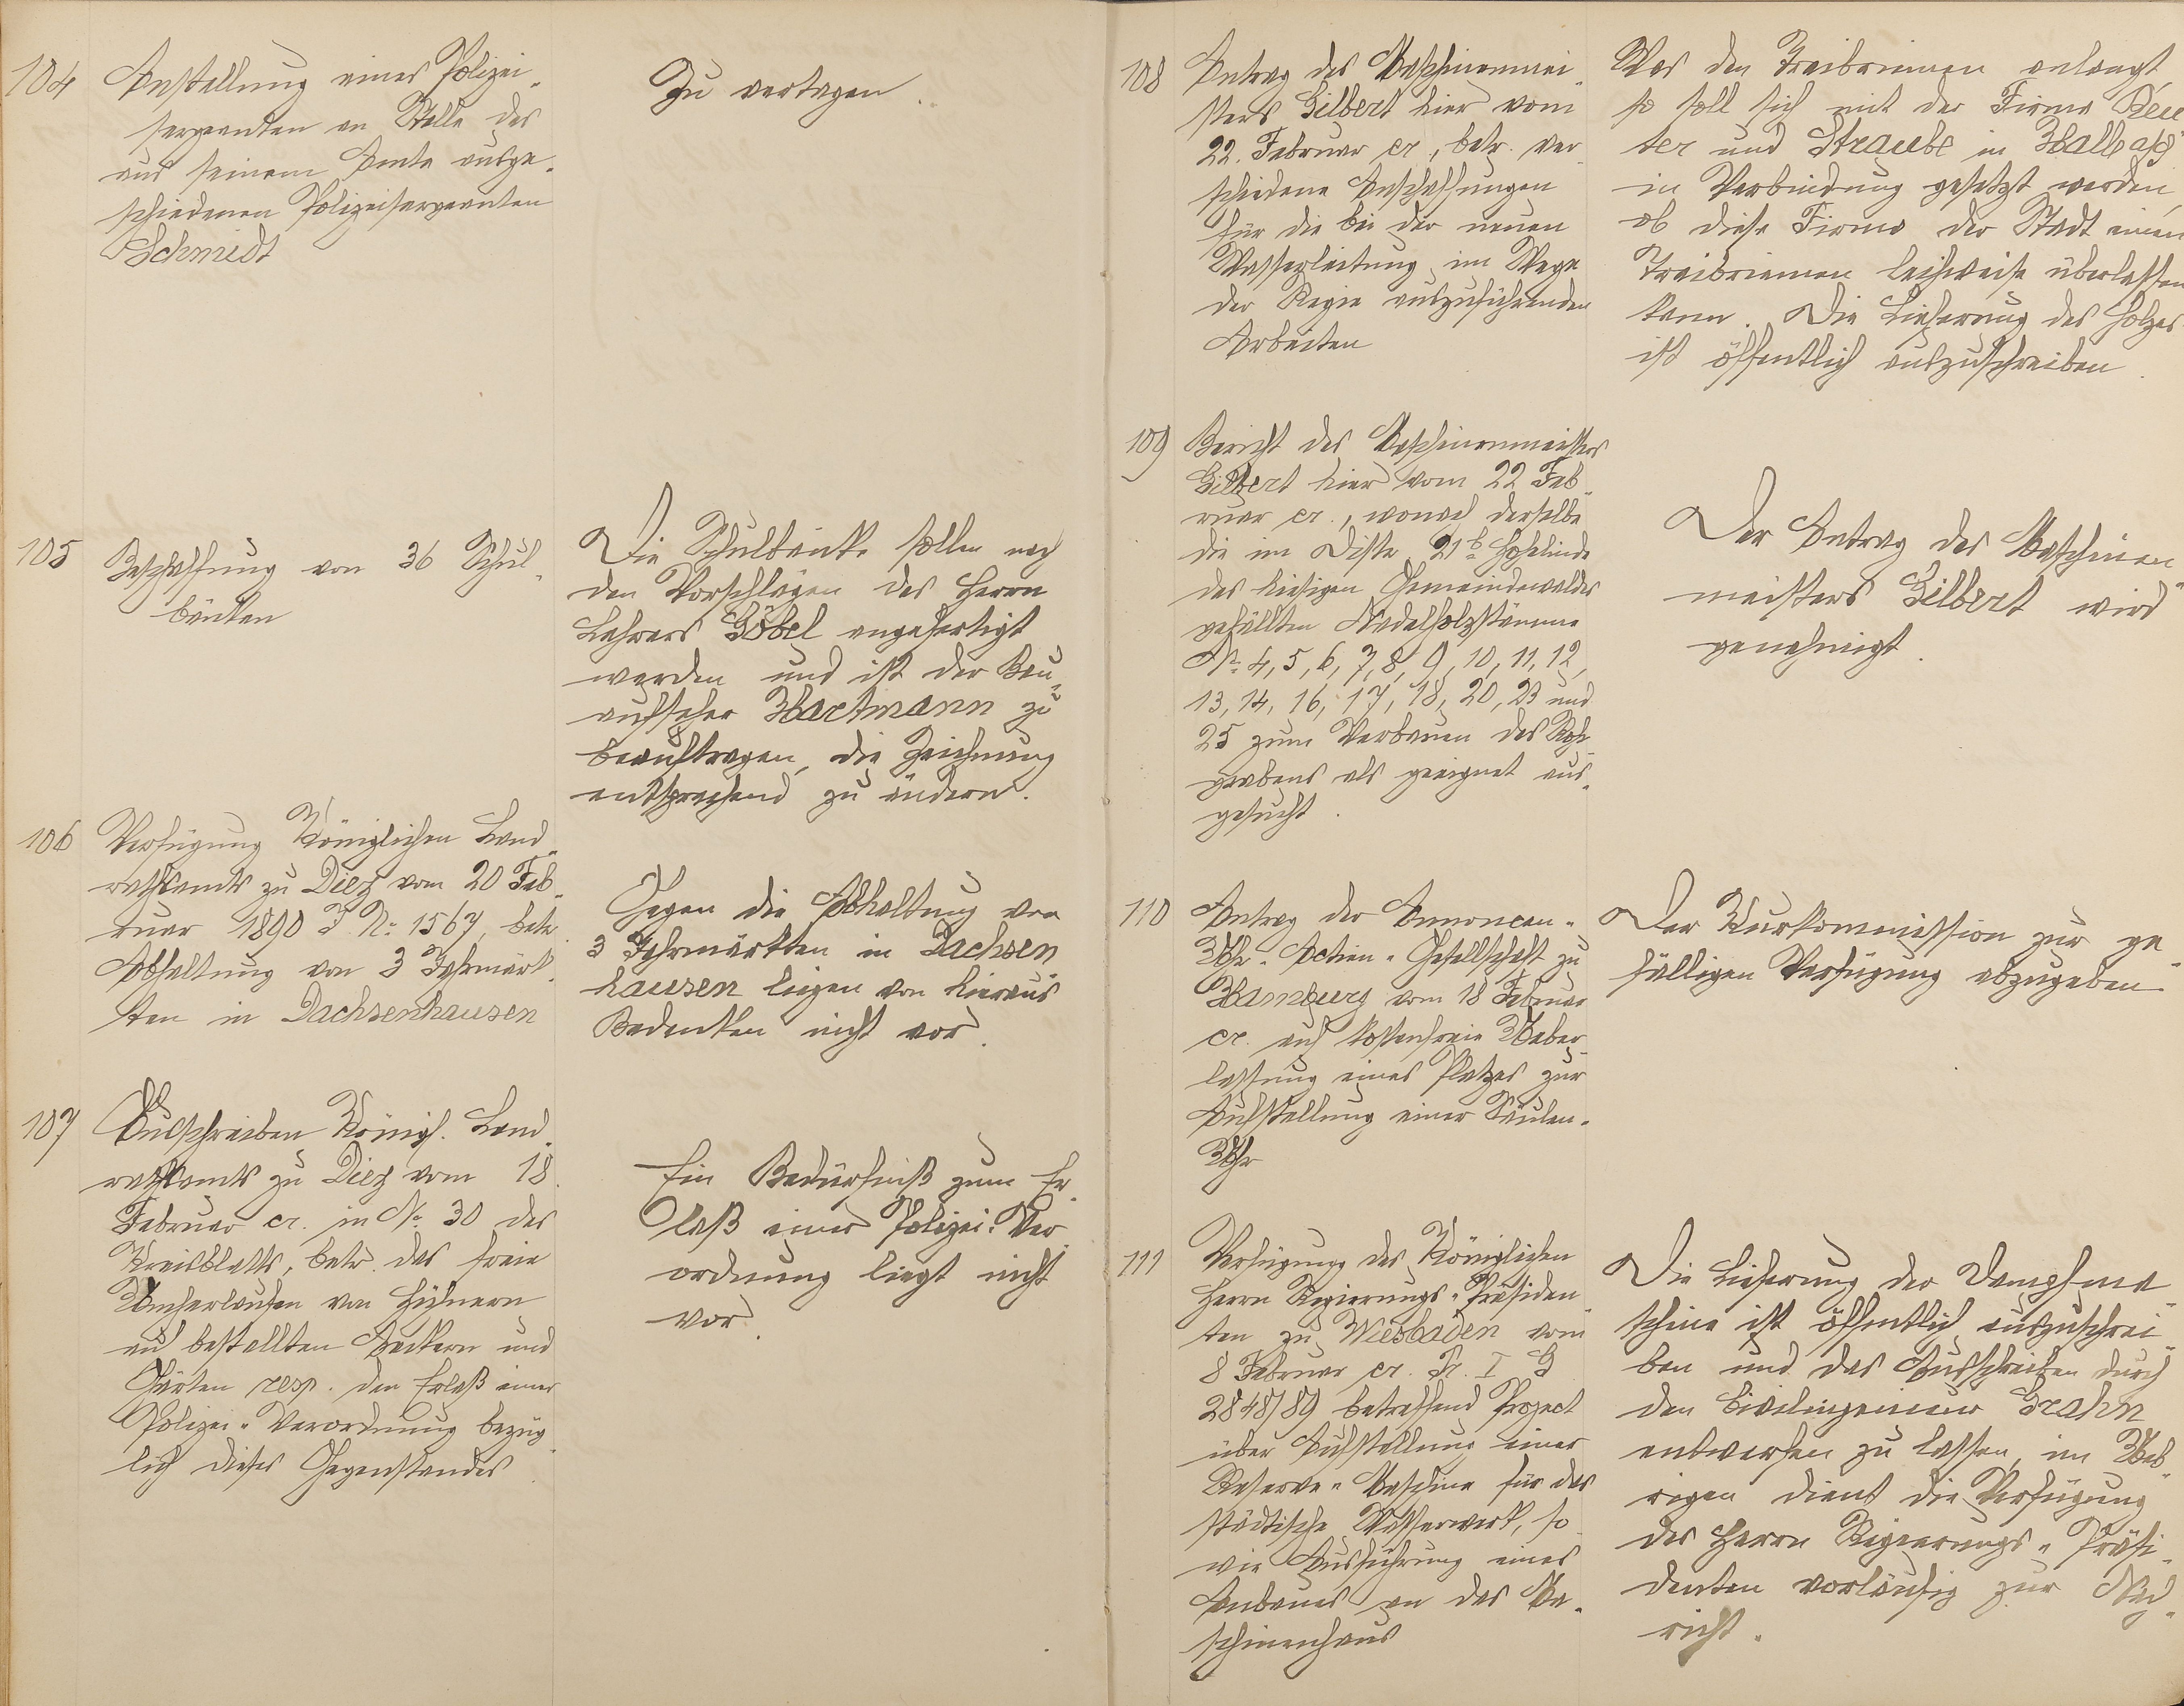 104 Anstellung eines Polizei-
sergeanten an Stelle des
aus seinem Amte ausge-
schiedenen Polizeisergeanten
Schmidt
Zu vertagen.
105 Beschaffung von 36 Schul-
bänken
Die Schulbänke sollen nach
den Vorschlägen des Herrn
Lehrers Göbel angefertigt
werden und ist der Bau-
aufseher Hartmann zu
beauftragen, die Zeichnung
entsprechend zu ändern.
106 Verfügung Königlichen Land-
rathsamts zu Diez vom 20 Feb-
ruar 1890 J. No. 1567, betr.
Abhaltung von 3 Jahrmärk-
ten in Dachsenhausen
Gegen die Abhaltung von
3 Jahrmärkten in Dachsen
hausen liegen von hieraus
Bedenken nicht vor.
107 Ausschreiben Königl. Land-
rathsamts zu Diez vom 18.
Februar cr. in No. 30 des
Kreisblatts, betr. das freie
Umherlaufen von Hühnern
auf bestellten Aeckern und
Gärten resp. den Erlaß einer
Polizei-Verordnung bezüg-
lich dieses Gegenstandes
Ein Bedürfniß zum Er-
laß einer Polizei-Ver-
ordnung liegt nicht
vor.
108 Antrag des Maschinenmei-
sters Gilbert hier vom
22. Februar cr., betr. ver-
schiedene Anschaffungen
für die bei der neuen
Wasserleitung im Wege
der Regie auszuführenden
Arbeiten
Was den Treibriemen anlangt
so soll sich mit der Firma Reu-
ter und Straube in Halle a/S
in Verbindung gesetzt werden,
ob diese Firma der Stadt einen
Treibriemen leihweise überlassen
kann. Die Lieferung des Holzes
ist öffentlich auszuschreiben.
109 Bericht des Maschinenmeisters
Gilbert hier vom 22 Feb-
ruar cr., wonach derselbe
die im Distr. 21b Hohelinde
des hiesigen Gemeindewaldes
gefällten Nadelholzstämme
No. 4, 5, 6, 7, 8, 9, 10, 11, 12,
13, 14, 16, 17, 18, 20, 23 und
25 zum Verbauen des Rohr-
grabens als geeignet aus-
gesucht.
Der Antrag des Maschinen-
meisters Gilbert wird
genehmigt.
110 Antrag der Annoncen-
Uhr-Actien-Gesellschaft zu
Hamburg vom 18 Februar
cr. auf kostenfreie Ueber-
lassung eines Platzes zur
Aufstellung einer Säulen-
Uhr
Der Kurkommission zur ge-
fälligen Verfügung abzugeben.
111 Verfügung des Königlichen
Herrn Regierungs-Präsiden-
ten zu Wiesbaden vom
8 Februar cr. Pr. I G
2848/89 betreffend Project
über Aufstellung einer
Reserve-Maschine für das
städtische Wasserwerk, so-
wie Ausführung eines
Anbaues an das Ma-
schinenhaus
Die Lieferung der Dampfma-
schine ist öffentlich auszuschrei-
ben und das Ausschreiben durch
den Civilingenieur Grahn
entwerfen zu lassen, im Ueb-
rigen dient die Verfügung
des Herrn Regierungs-Präsi-
denten vorläufig zur Nach-
richt.